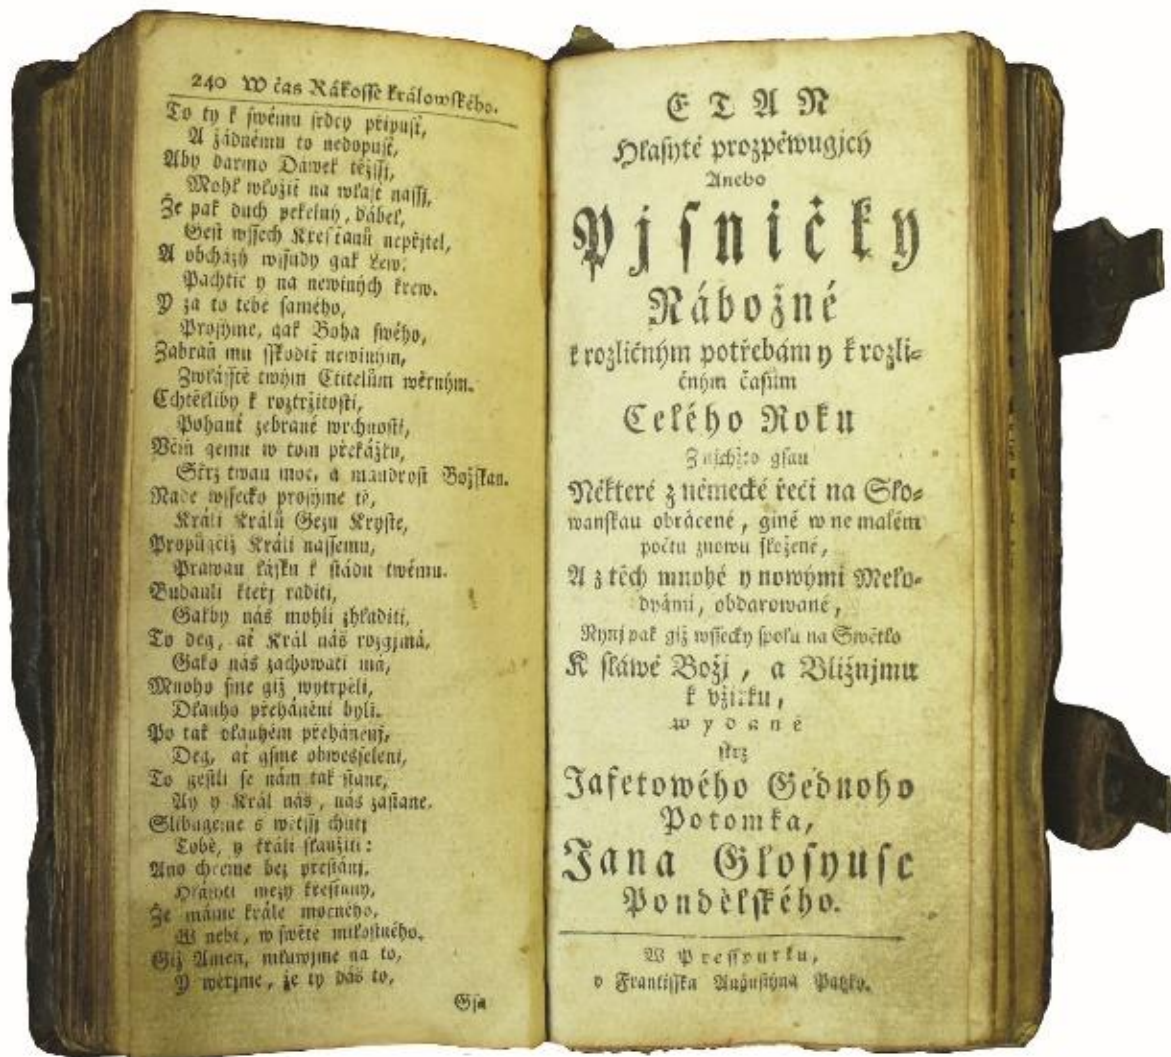 240 W čas Rákosse králowského.
To ty k swému srdcy připusť,
A žádnému to nedopusť,
Aby darmo Dáwek těžssj,
Mohl wložiť na wlasť nassj,
Že pak duch pekelný, ďábel,
Gest wssech Kresťanů nepřjtel,
A obcházý wssudy gak Lew,
Pachtic y na newiných krew.
Y za to tebe samého,
Prosýme, gak Boha swého,
Zabraň mu sskodiť newiným,
Zwlásstě twým Ctitelům wěrným.
Cchtěliby k roztržitosti,
Pohané zebrané wrchnosti,
Včiň gemu w tom překážku,
Skrz twau moc, a maudrost Božskau.
Nade wssecko prosýme tě,
Králi Králů Gezu Kryste,
Propůgčiž Králi nassemu,
Prawau lásku k stádu twému.
Budauli kteřj raditi,
Gakby nás mohli zhladiti,
To deg, ať Král nás rozgjmá,
Gako nás zachowati má,
Mnoho sme giž wytrpěli,
Dlauho přehánění byli.
Po tak dlauhém přeháněnj,
Deg, ať gsme obwesseleni,
To gestli se nám tak stane,
Ay y Král nás, nás zastane.
Slibugeme s wětssj chutj
Tobě, y králi slaužiti:
Ano chceme bez prestánj,
Hlásyti mezy kresťany,
Že máme krále mocného,
W nebi, w swětě milostného.
Giž Amen, mluwjme na to,
Y wěřjme, že ty dás to,
Gsa
ETAN
Hlasyťe prozpěwugjcý
Anebo
Pjsničky
Nábožné
k rozličným potřebám y k rozli-
čným časům
Celého Roku
Z nichžto gsau
Některé z německé řeči na Slo-
wanskau obrácené, giné w ne malém
počtu znowu složené,
A z těch mnohé y nowými Melo-
dyámi, obdarowané,
Nynj pak giž wssecky spolu na Swětlo
K sláwě Božj, a Bližnjmu
k vžitku,
wydané
skrz
Jafetowého Gednoho
Potomka,
Jana Glosyuse
Pondělského.
W Presspurku,
v Frantisska Augustýna Patzko.